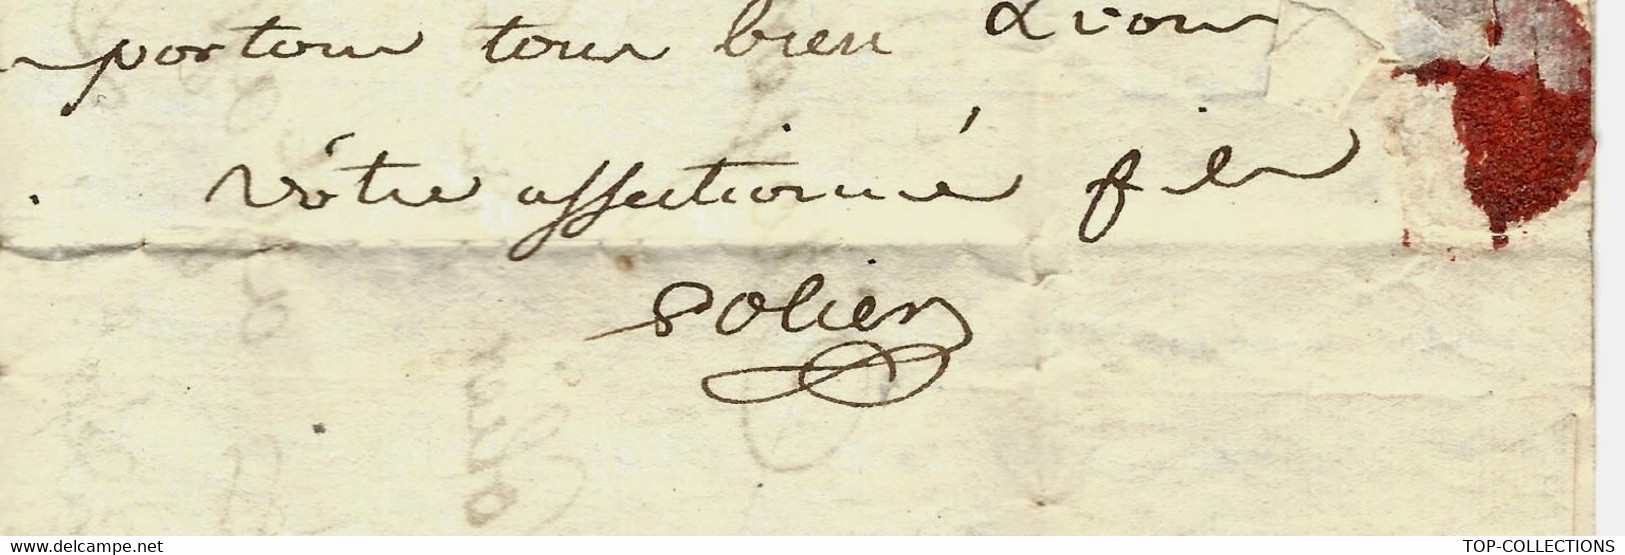 portons tous bien & vous
vôtre affectionné fils
Solier
www.delcampe.net
TOP-COLLECTIONS